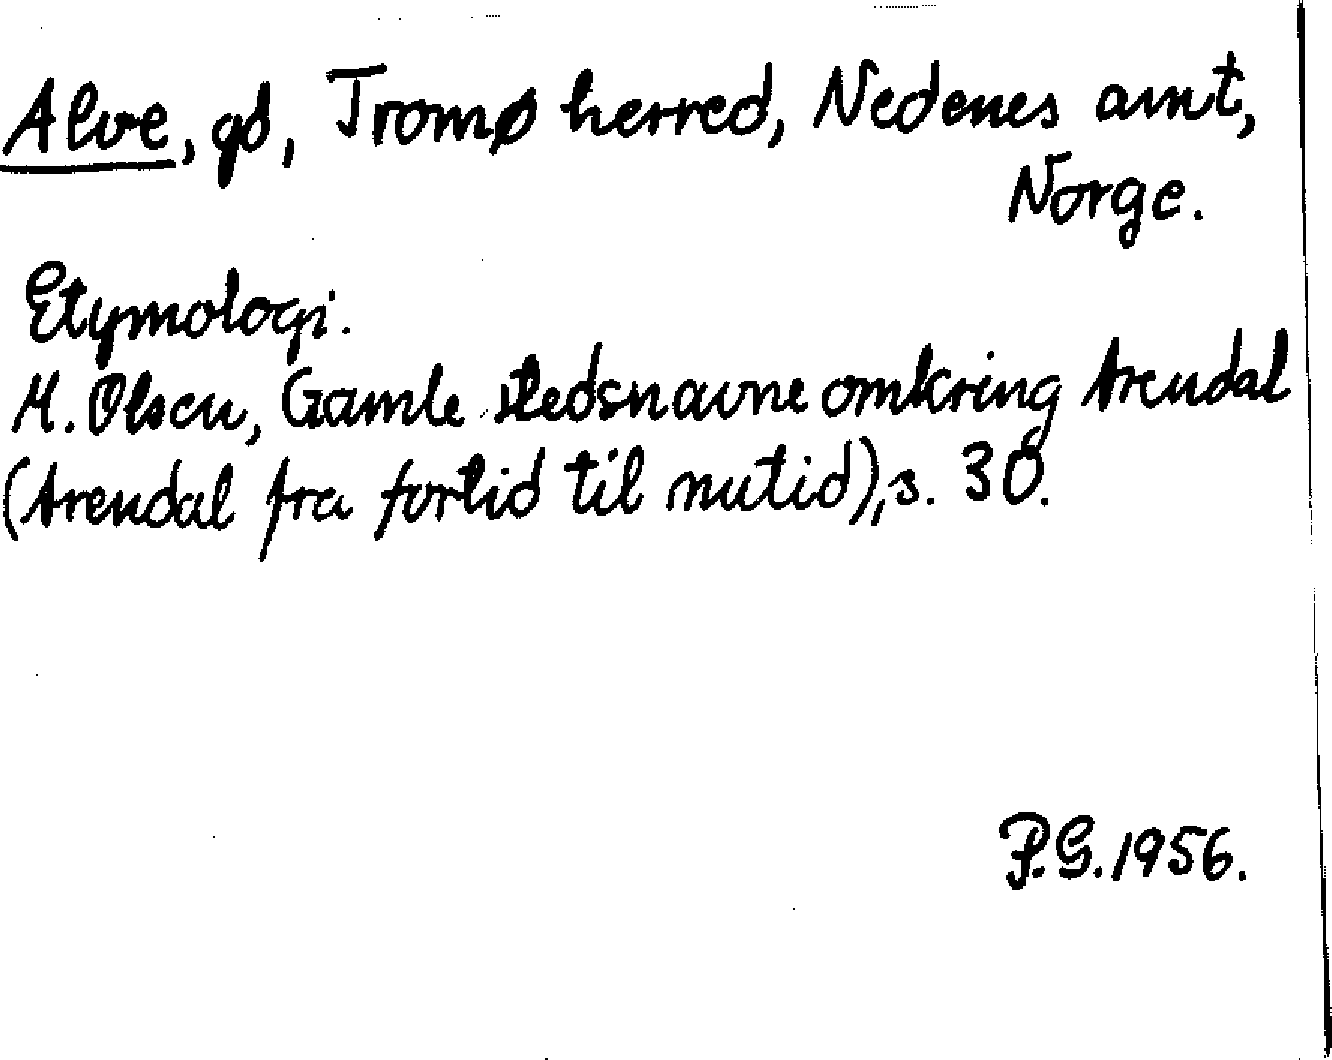 Alve, gd, Tromø herred, Nedenes amt,
Norge.
Etymologi.
M. Olsen, Gamle stedsnavne omkring Arendal
(Arendal fra fortid til nutid), s. 30.
P.G. 1956.